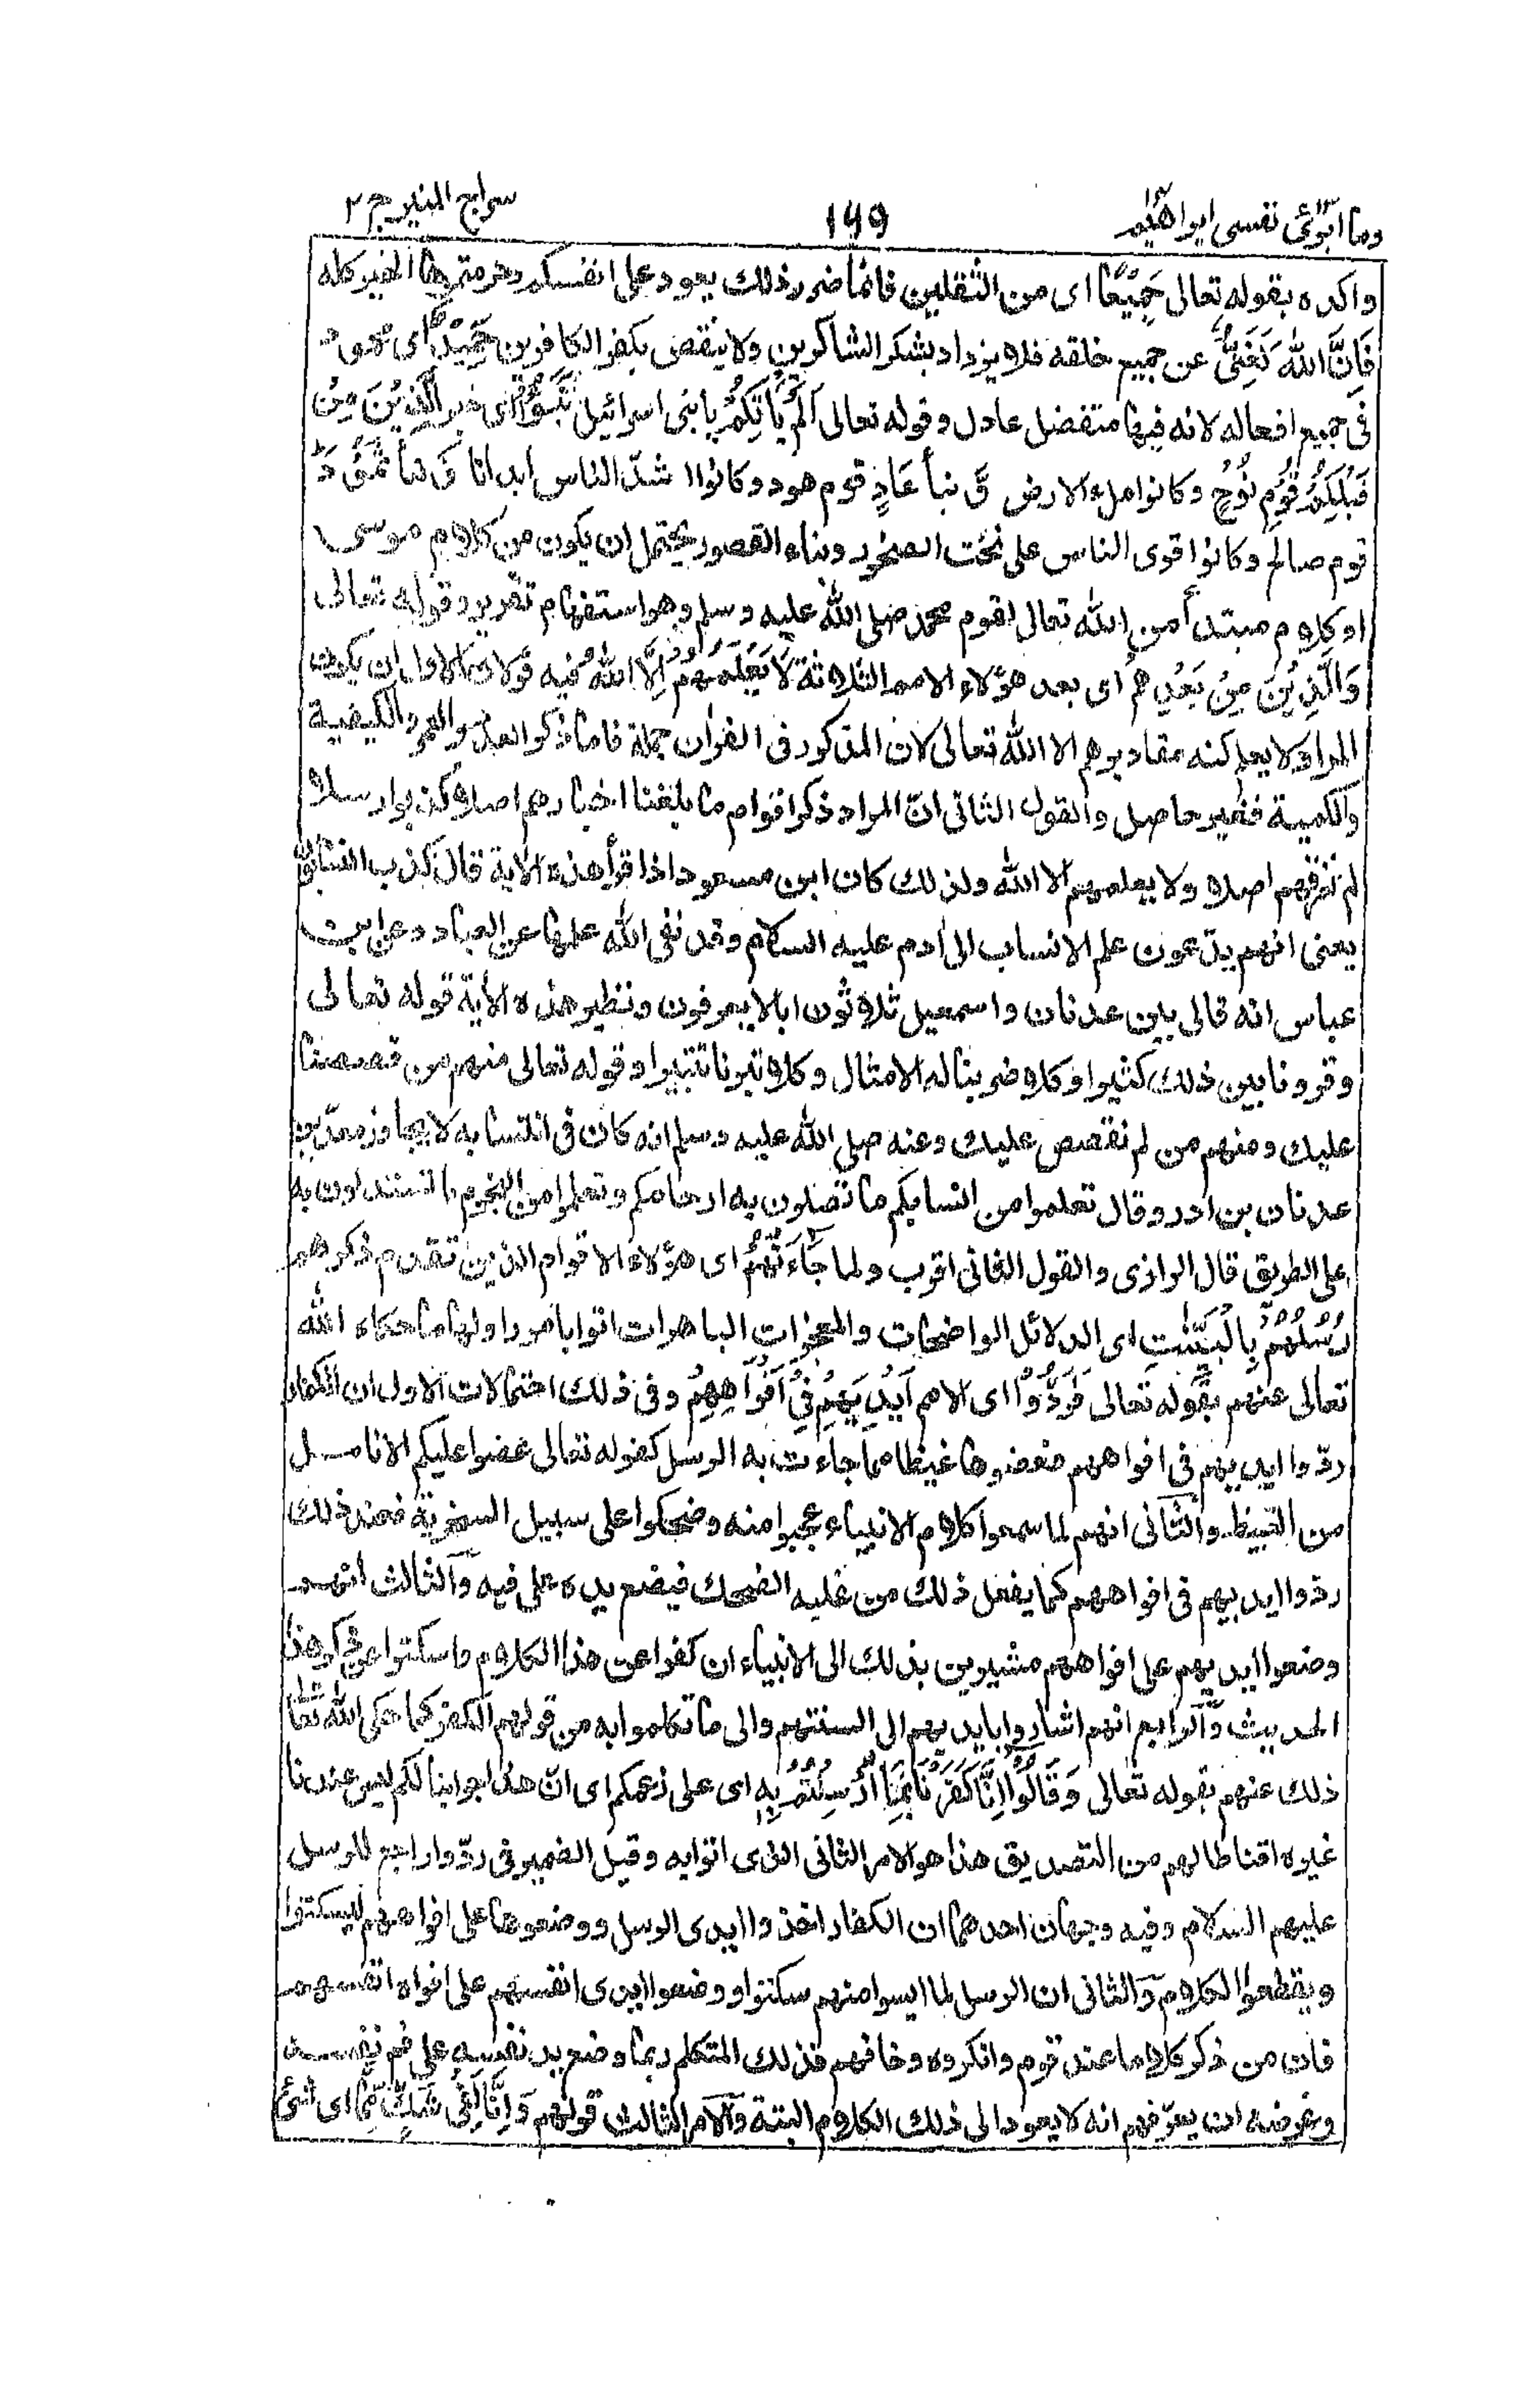 وما ابرّئ نفسی ابراهیم ۱۴
۱۶۹
سراج المنیر ج ۲
واكده بقوله تعالى جَمِيْعًا اى من الثقلين فانما ضرر ذلك يعود على انفسكم وحرمتموها الخير كله
فَاِنَّ اللهَ لَغَنِىٌّ عن جميع خلقه فلا يزداد بشكر الشاكرين ولا ينقص بكفر الكافرين حَمِيْدٌ اى محمود
فى جميع افعاله لانه فيها متفضل عادل وقوله تعالى اَلَمْ يَاْتِكُمْ يا بنى اسرائيل نَبَؤُا اى خبر الَّذِيْنَ مِنْ
قَبْلِكُمْ قَوْمِ نُوْحٍ وكانوا ملء الارض وَّ نبأ عَادٍ قوم هود وكانوا اشدّ الناس ابدانا وَ نبأ ثَمُوْدَ
قوم صالح وكانوا اقوى الناس على نحت الصخور وبناء القصور يحتمل ان يكون من كلام موسى
او كلام مبتدأ من الله تعالى لقوم محمد صلى الله عليه وسلم وهو استفهام تقرير وقوله تعالى
وَالَّذِيْنَ مِنْ بَعْدِهِمْ اى بعد هؤلاء الامم الثلاثة لَا يَعْلَمُهُمْ اِلَّا اللهُ فيه قولان الاول ان يكون
المراد لا يعلم كنه مقاديرهم الا الله تعالى لان المذكور فى القرأن جملة فاما ذكر العدد والعمر والكيفية
والكمية فغير حاصل والقول الثانى انّ المراد ذكر اقوام ما بلغنا اخبارهم اصلا كذبوا رسلا
لم نعرفهم اصلا ولا يعلمهم الا الله ولذلك كان ابن مسعود اذا قرأ هذه الاية قال كذب النسابون
يعنى انهم يدّعون علم الانساب الى أدم عليه السلام وقد نفى الله علمها عن العباد وعن ابن
عباس انه قال بين عدنان واسمعيل ثلاثون ابا لا يعرفون ونظير هذه الأية قوله تعالى
وقرونا بين ذلك كثيرا وكلا ضربنا له الامثال وكلا تبرنا تتبيرا وقوله تعالى منهم من قصصنا
عليك ومنهم من لم نقصص عليك وعنه صلى الله عليه وسلم انه كان فى انتسابه لا يجاوز معدّ بن
عدنان بن ادد وقال تعلموا من انسابكم ما تصلون به ارحامكم وتعلموا من النجوم ما تستدلون به
على الطريق قال الرازى والقول الثانى اقرب ولما جَآءَتْهُمْ اى هؤلاء الاقوام الذين تقدم ذكرهم
رُسُلُهُمْ بِالْبَيِّنٰتِ اى الدلائل الواضحات والمعجزات الباهرات اتوا بامور اولها ما حكاه الله
تعالى عنهم بقوله تعالى فَرَدُّوْۤا اى الامم اَيْدِيَهُمْ فِىْۤ اَفْوَاهِهِمْ وفى ذلك احتمالات الاول ان الكفار
ردّوا ايديهم فى افواههم فعضوها غيظا مما جاءت به الرسل كقوله تعالى عضوا عليكم الانامل
من الغيظ والثانى انهم لما سمعوا كلام الانبياء عجبوا منه وضحكوا على سبيل السخرية فعند ذلك
ردّوا ايديهم فى افواههم كما يفعل ذلك من غلبه الضحك فيضع يده على فيه والثالث انهم
وضعوا ايديهم على افواههم مشيرين بذلك الى الانبياء ان كفوا عن هذا الكلام واسكتوا عن ذكر هذا
الحديث والرابع انهم اشاروا بايديهم الى السنتهم والى ما تكلموا به من قولهم الكفر كما حكى الله تعالى
ذلك عنهم بقوله تعالى وَقَالُوْۤا اِنَّا كَفَرْنَا بِمَاۤ اُرْسِلْتُمْ بِهٖ اى على زعمكم اى انّ هذا جوابنا لكم ليس عندنا
غيره اقناطا لهم من التصديق هذا هو الامر الثانى الذى اتوا به وقيل الضمير فى ردّوا راجع للرسل
عليهم السلام وفيه وجهان احدهما ان الكفار اخذوا ايدى الرسل ووضعوها على افواههم ليسكتوا
ويقطعوا الكلام والثانى ان الرسل لما ايسوا منهم سكتوا ووضعوا ايدى انفسهم على افواه انفسهم
فان من ذكر كلاما عند قوم وانكروه وخافهم فذلك المتكلم ربما وضع يد نفسه على فم نفسه
وغرضه ان يعرّفهم انه لا يعود الى ذلك الكلام البتة والامر الثالث قولهم وَاِنَّا لَفِىْ شَكٍّ مِّمَّا اى شئ